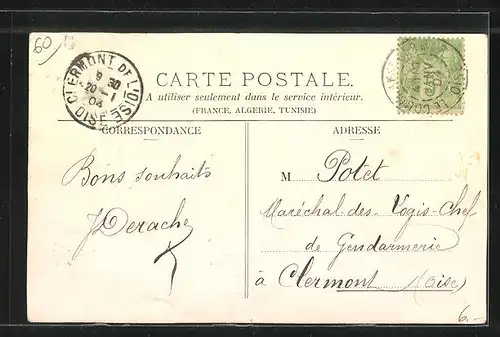 60
CLERMONT DE L'OISE
8 30
20 1
04
OISE
CARTE POSTALE.
A utiliser seulement dans le service intérieur.
(FRANCE, ALGERIE, TUNISIE)
CORRESPONDANCE
Bons souhaits
J Derache
ADRESSE
M Potet
Maréchal-des-Logis-Chef
de Gendarmerie
à Clermont (Oise)
6.-